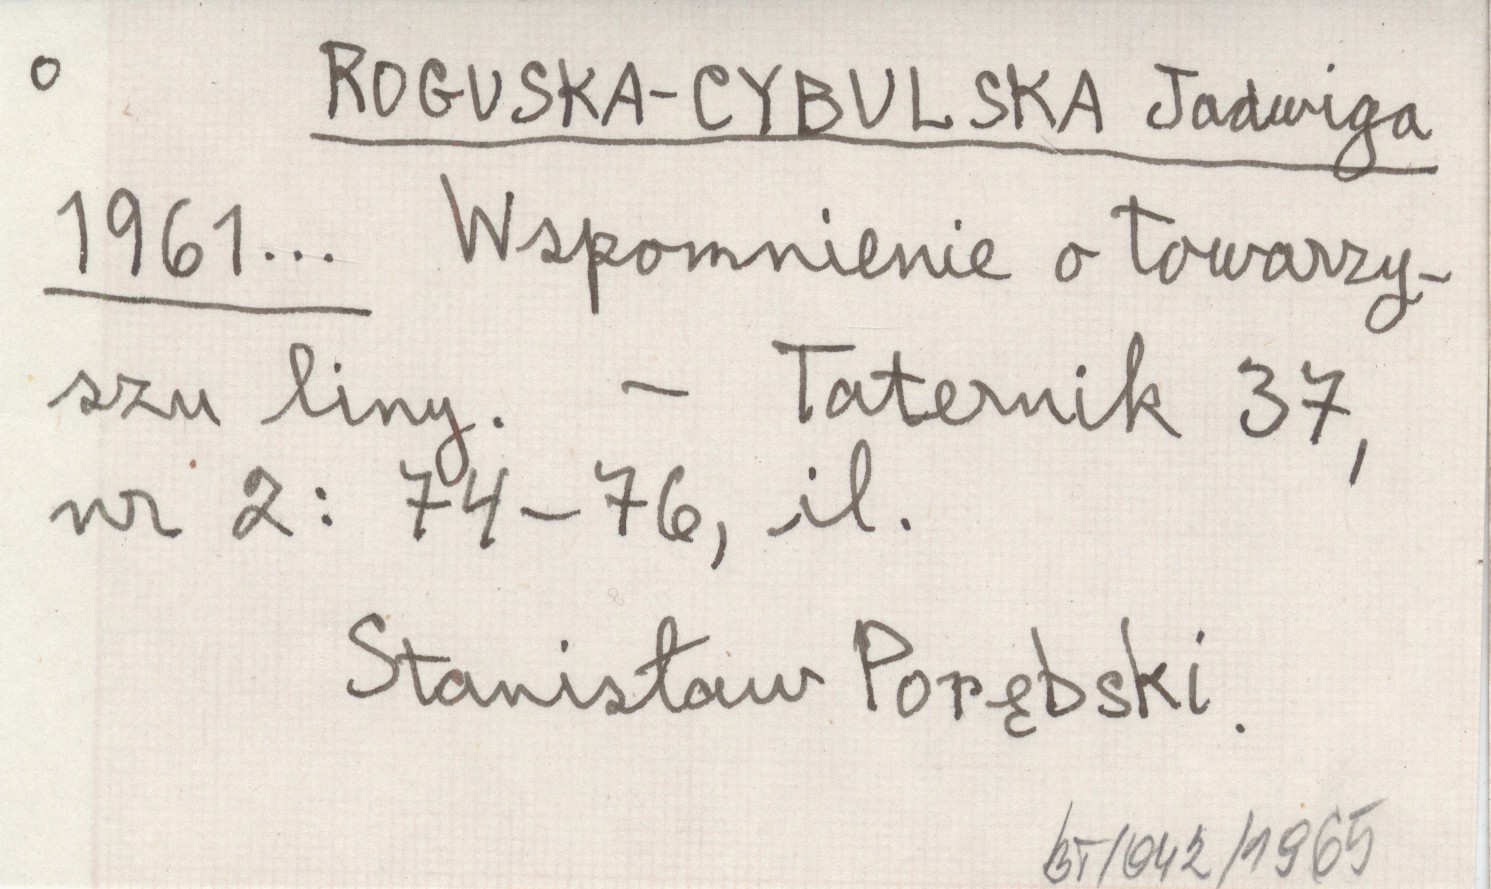 o ROGUSKA-CYBULSKA Jadwiga
1961... Wspomnienie o towarzy-
szu liny. – Taternik 37,
nr 2: 74–76, il.
Stanisław Porębski.
BT/042/1965